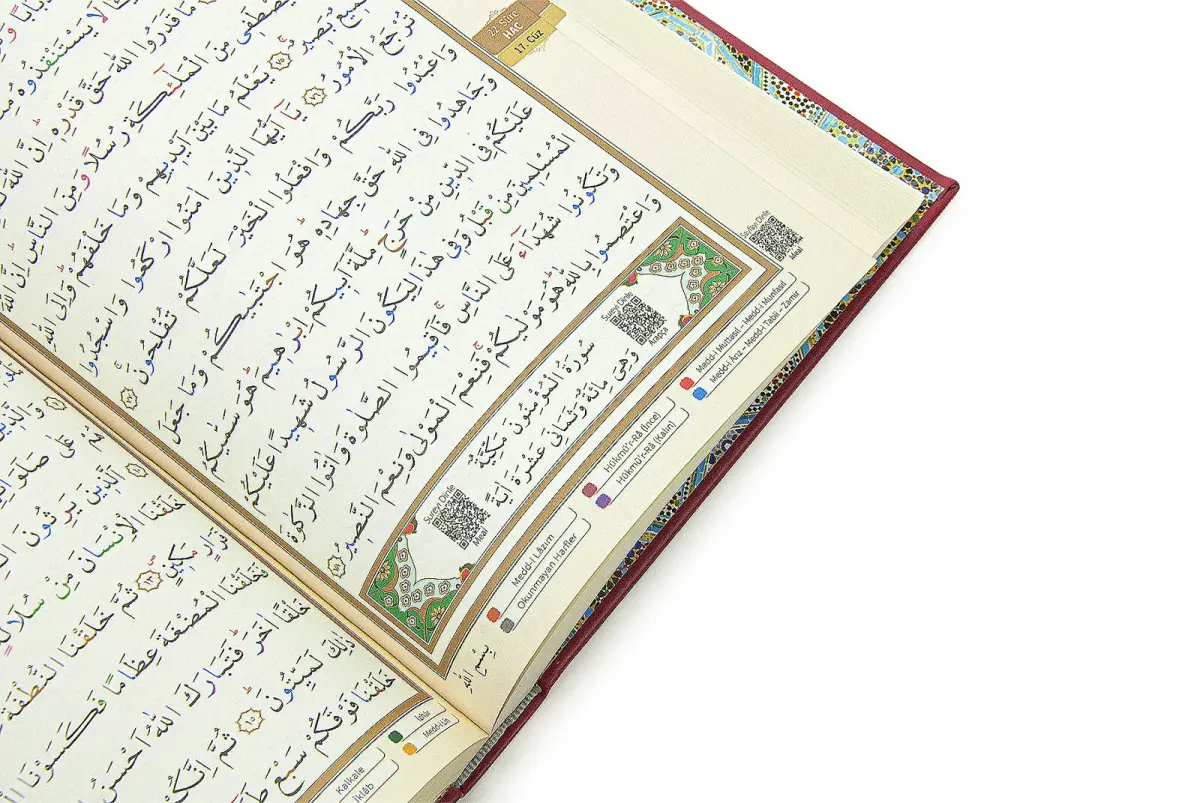 22. Sûre
HAC
17. Cüz
مَا قَدَرُوا اللّٰهَ حَقَّ قَدْرِهٖ اِنَّ اللّٰهَ
مِنَ الْمَلٰٓئِكَةِ رُسُلًا وَمِنَ النَّاسِ اِنَّ اللّٰهَ
سَمٖيعٌ بَصٖيرٌ ﴿٧٥﴾ يَعْلَمُ مَا بَيْنَ اَيْدٖيهِمْ وَمَا خَلْفَهُمْ وَاِلَى اللّٰهِ
تُرْجَعُ الْاُمُورُ ﴿٧٦﴾ يَٓا اَيُّهَا الَّذٖينَ اٰمَنُوا ارْكَعُوا وَاسْجُدُوا
وَاعْبُدُوا رَبَّكُمْ وَافْعَلُوا الْخَيْرَ لَعَلَّكُمْ تُفْلِحُونَ ﴿٧٧﴾
وَجَاهِدُوا فِى اللّٰهِ حَقَّ جِهَادِهٖ هُوَ اجْتَبٰيكُمْ وَمَا جَعَلَ
عَلَيْكُمْ فِى الدّٖينِ مِنْ حَرَجٍ مِلَّةَ اَبٖيكُمْ اِبْرٰهٖيمَ هُوَ سَمّٰيكُمُ
الْمُسْلِمٖينَ مِنْ قَبْلُ وَفٖى هٰذَا لِيَكُونَ الرَّسُولُ شَهٖيدًا عَلَيْكُمْ
وَتَكُونُوا شُهَدَٓاءَ عَلَى النَّاسِ فَاَقٖيمُوا الصَّلٰوةَ وَاٰتُوا الزَّكٰوةَ
وَاعْتَصِمُوا بِاللّٰهِ هُوَ مَوْلٰيكُمْ فَنِعْمَ الْمَوْلٰى وَنِعْمَ النَّصٖيرُ ﴿٧٨﴾
Sureyi Dinle
Arapça
سُورَةُ الْمُؤْمِنُونَ مَكِّيَّةٌ
وَهِىَ مِائَةٌ وَثَمَانِىَ عَشْرَةَ اٰيَةً
Sureyi Dinle
Meal
Sayfayı Dinle
Meal
Medd-i Muttasıl – Medd-i Munfasıl
Medd-i Ârız – Medd-i Tabîî – Zamir
Hükmü'r-Râ (İnce)
Hükmü'r-Râ (Kalın)
Medd-i Lâzım
Okunmayan Harfler
بِسْمِ اللّٰهِ
عَلٰى صَلَوَاتِهِمْ
اَلَّذٖينَ يَرِثُونَ
خَلَقْنَا الْاِنْسَانَ مِنْ سُلَالَةٍ
قَرَارٍ مَكٖينٍ ﴿١٣﴾ ثُمَّ خَلَقْنَا النُّطْفَةَ
فَخَلَقْنَا الْمُضْغَةَ عِظَامًا فَكَسَوْنَا
خَلْقًا اٰخَرَ فَتَبَارَكَ اللّٰهُ اَحْسَنُ
ذٰلِكَ لَمَيِّتُونَ ﴿١٥﴾ ثُمَّ اِنَّكُمْ
خَلَقْنَا فَوْقَكُمْ سَبْعَ
İzhâr
Medd-i Lîn
Kalkale
İklâb